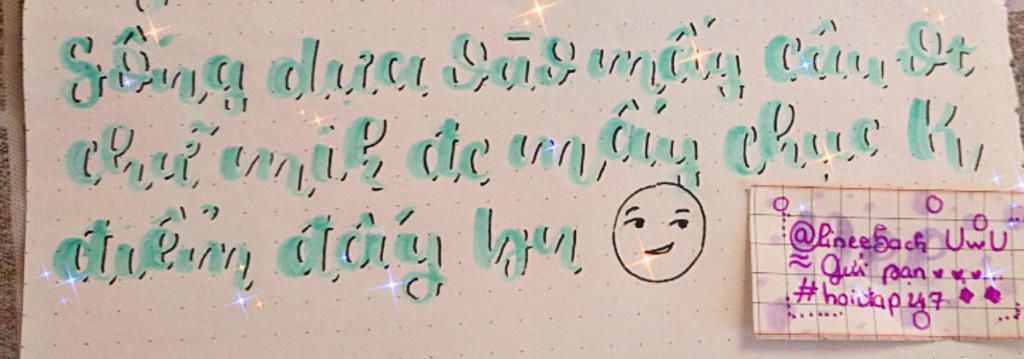 Sống dựa vào mấy câu vt
chữ mik đc mấy chục k
điểm đấy hụ
@lineebach UwU
≈ Gửi pan
#hoivtap247